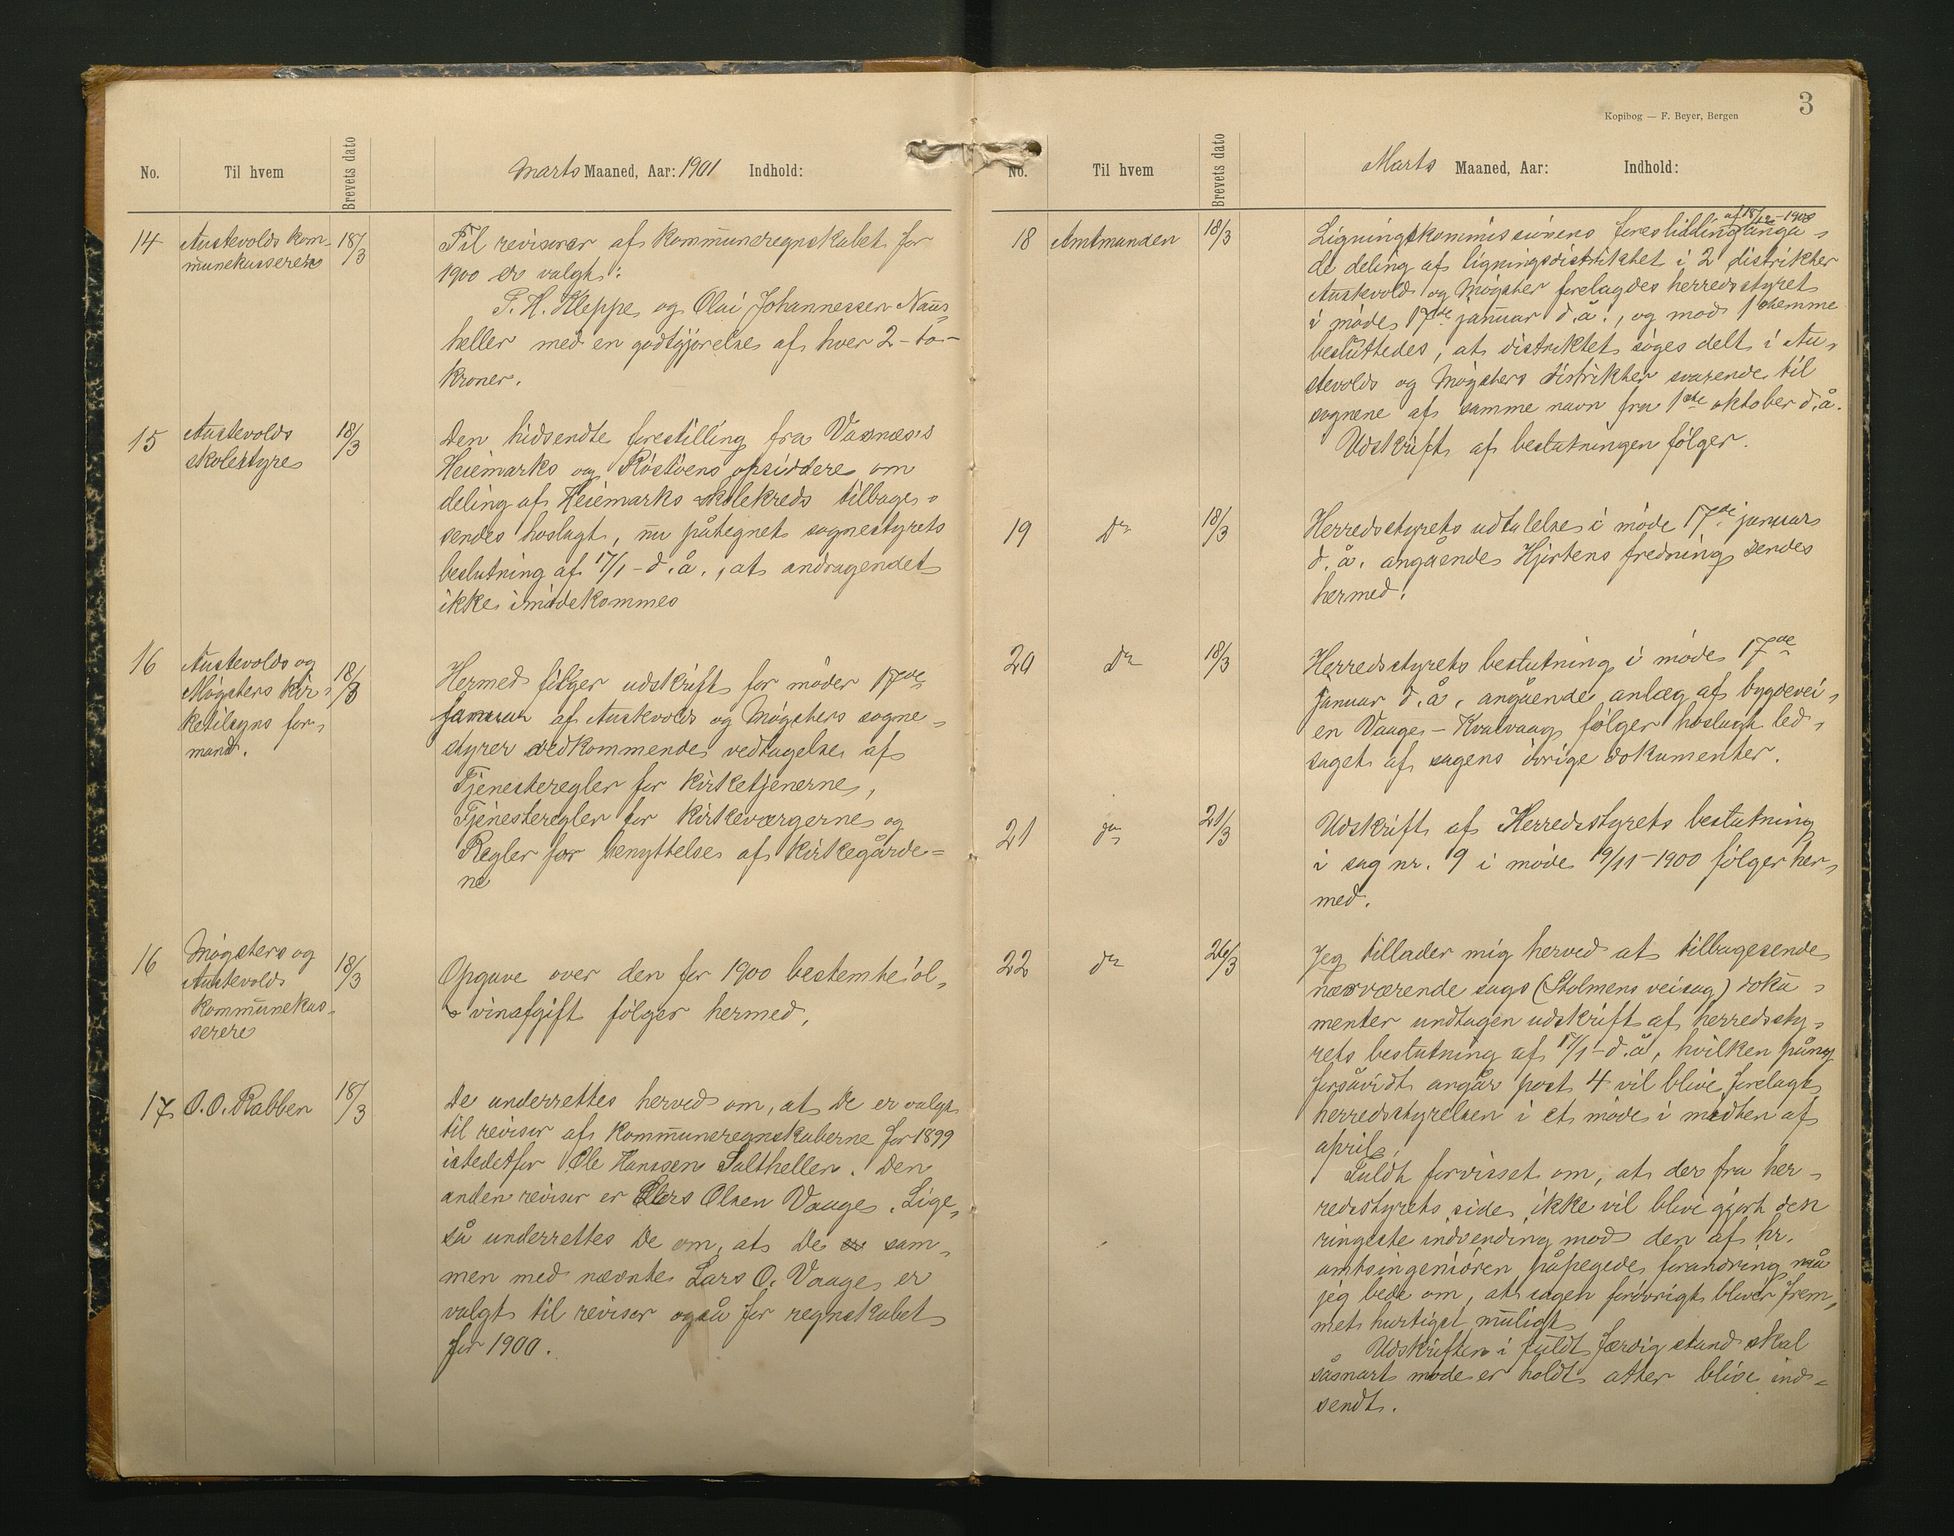 No.
Til hvem
Brevets dato
Marts Maaned, Aar: 1901 Indhold:
14
Austevolds kom-
munekasserer
18/3
Til revisorer af kommuneregnskabet for
1900 er valgt:
P. H. Kleppe og Olai Johannessen Naus-
heller med en godtgjørelse af hver 2 - to -
kroner.
15
Austevolds
skolestyre
18/3
Den hidsendte forestilling fra Vasnæs's
Heiemarks og Røstøens opsiddere om
deling af Heiemarks skolekreds tilbage-
sendes hoslagt, nu påtegnet sognestyrets
beslutning af 17/1 - d.å., at andragendet
ikke imødekommes
16
Austevolds og
Møgsters kir-
ketilsyns for-
mænd.
18/3
Hermed følger udskrift for møder 17de
januar af Austevolds og Møgsters sogne-
styrer vedkommende vedtagelse af
Tjenesteregler for kirketjenerne,
Tjenesteregler for kirkeværgerne og
Regler for benyttelse af kirkegårde=
ne
16
Møgsters og
Austevolds
kommunekas-
serere
18/3
Opgave over den for 1900 bestemte øl-
& vinafgift følger hermed.
17
O. O. Rabben
18/3
De underrettes herved om, at De er valgt
til revisor af kommuneregnskaberne for 1899
istedetfor Ole Hanssen Saltheller. Den
anden revisor er Lars Olsen Vaage. Lige-
så underrettes De om, at De sam-
men med nævnte Lars O. Vaage er
valgt til revisor også for regnskabet
for 1900.
Kopibog — F. Beyer, Bergen
3
No.
Til hvem
Brevets dato
Marts Maaned, Aar: Indhold:
18
Amtmanden
18/3
af 18/12-1900
Ligningskommissionens foreslilling angå-
de deling af ligningsdistriktet i 2 distrikter
Austevold og Møgster forelagdes herredsstyret
i møde 17de januar d.å., og mod 1 stemme
besluttedes, at distriktet søges delt i Au-
stevolds og Møgsters distrikter svarende til
sognene af samme navn fra 1ste oktober d.å.
Udskrift af beslutningen følger.
19
Do
18/3
Herredsstyrets udtalelse i møde 17de januar
d.å. angående Hjortens fredning sendes
hermed.
20
Do
18/3
Herredsstyrets beslutning i møde 17de
januar d.å. angående anlæg af bygdevei-
en Vaage - Kvalvaag følger hoslagt led-
saget af sagens øvrige dokumenter.
21
do
21/3
Udskrift af Herredsstyrets beslutning
i sag nr. 9 i møde 19/11-1900 følger her-
med.
22
do
26/3
Jeg tillader mig herved at tilbagesende
nærværende sags (Stolmens veisag) doku-
menter undtagen udskrift af herredssty-
rets beslutning af 17/1 - d.å, hvilken påny
forsåvidt angår post 4 vil blive forelagt
herredsstyrelsen i et møde i midten af
april.
Fuldt forvisset om, at der fra her-
redsstyrets side ikke vil blive gjort den
ringeste indvending mod den af hr.
amtsingeniøren påpegede forandring må
jeg bede om, at sagen forøvrigt bliver frem-
met hurtigst muligt
Udskriften i fuldt færdig stand skal
såsnart møde er holdt atter blive ind=
sendt.